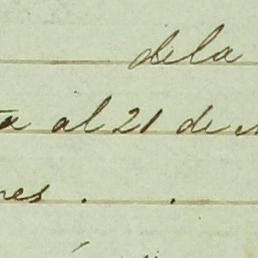 de la
ta al 21 de
nes . .